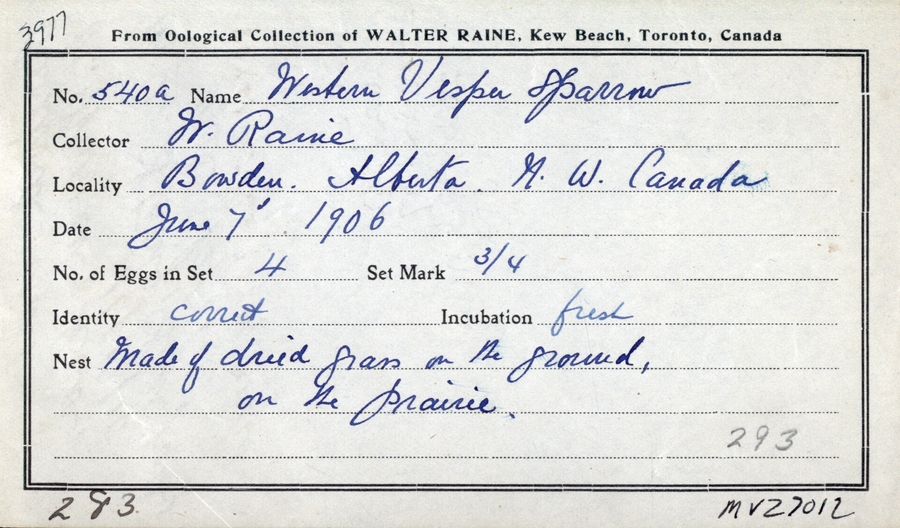 3977
From Oological Collection of WALTER RAINE, Kew Beach, Toronto, Canada
No. 540a Name Western Vesper Sparrow
Collector W. Raine
Locality Bowden. Alberta. N. W. Canada
Date June 7' 1906
No. of Eggs in Set 4 Set Mark 3/4
Identity correct Incubation fresh
Nest Made of dried grass on the ground,
on the prairie.
293
283
MVZ7012